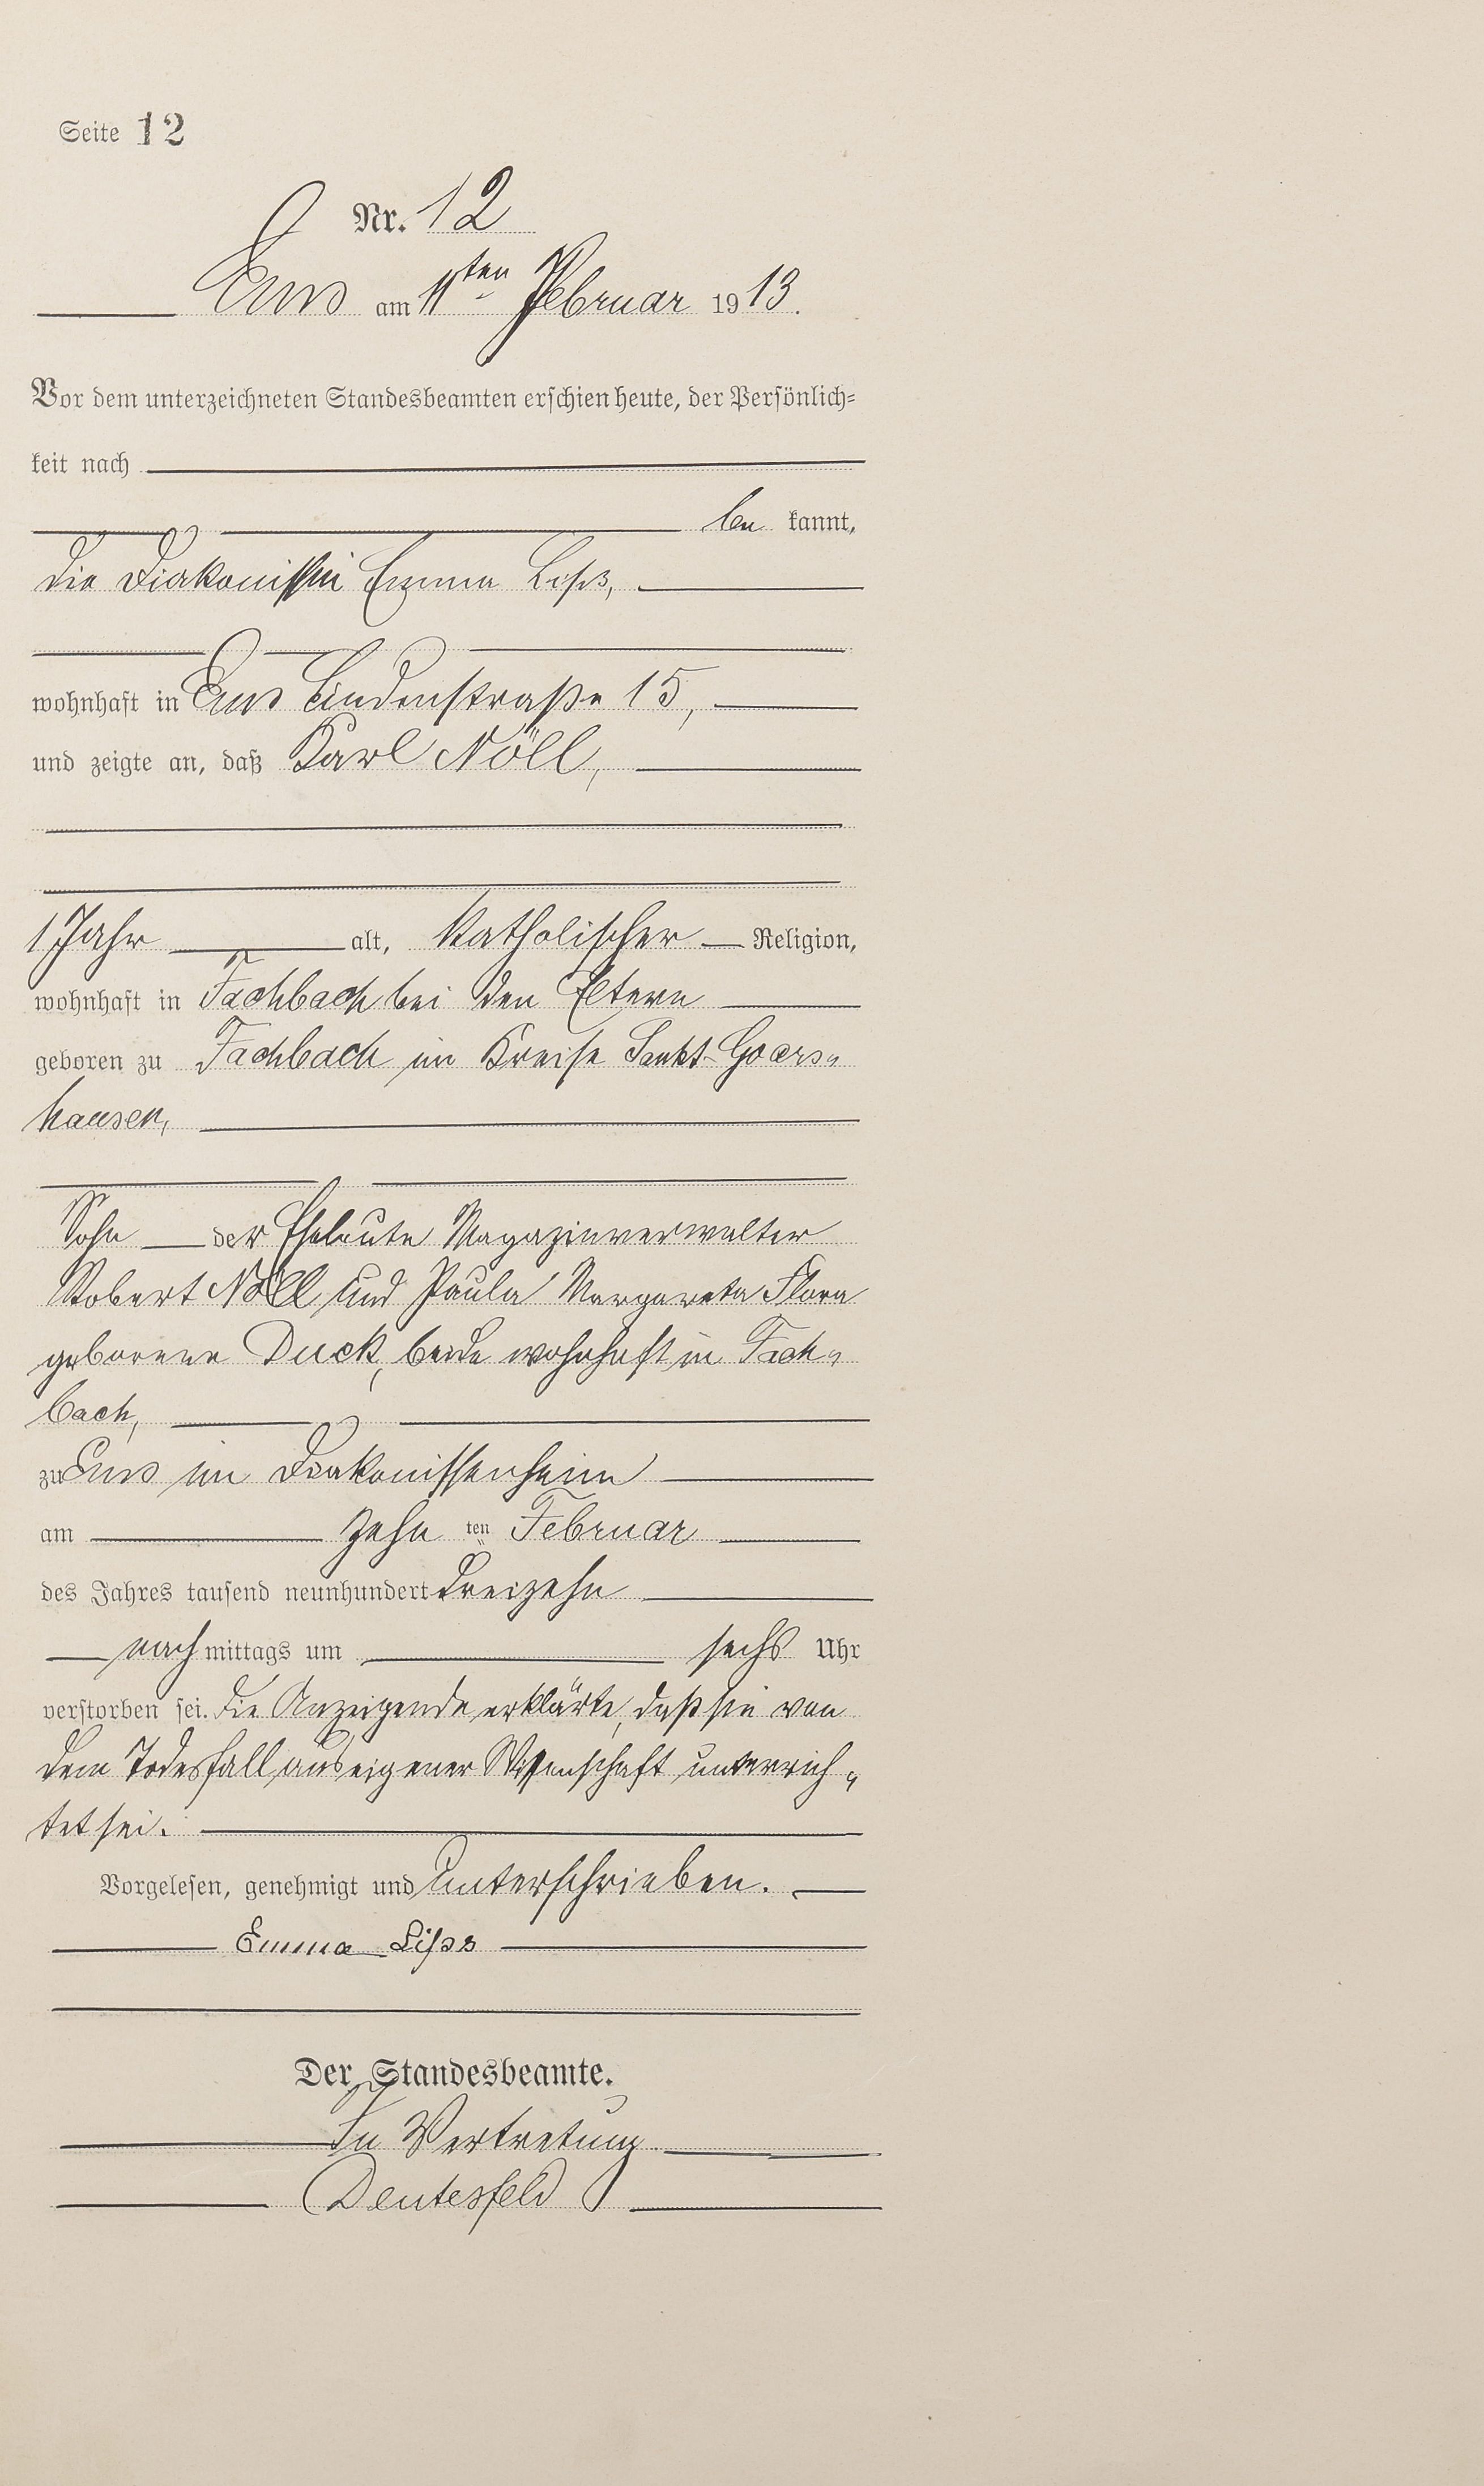 Seite 12
Nr. 12
Ems am 11ten Februar 1913.
Vor dem unterzeichneten Standesbeamten erschien heute, der Persönlich=
keit nach
be kannt,
die Diakonissin Emma Liss,
wohnhaft in Ems Lindenstraße 15,
und zeigte an, daß Karl Nöll,
1 Jahr alt, katholischer Religion,
wohnhaft in Fachbach bei den Eltern
geboren zu Fachbach im Kreise Sankt-Goars„
hausen,
Sohn der Eheleute Magazinverwalter
Robert Nöll und Paula Margareta Flora
geborene Duck, beide wohnhaft in Fach„
bach,
zu Ems im Diakonissenheim
am zehn ten Februar
des Jahres tausend neunhundert dreizehn
nach mittags um sechs Uhr
verstorben sei. Die Anzeigende erklärte, daß sie von
dem Todesfall aus eigener Wissenschaft unterrich„
tet sei.
Vorgelesen, genehmigt und unterschrieben.
Emma Liss
Der Standesbeamte.
In Vertretung
Deutesfeld